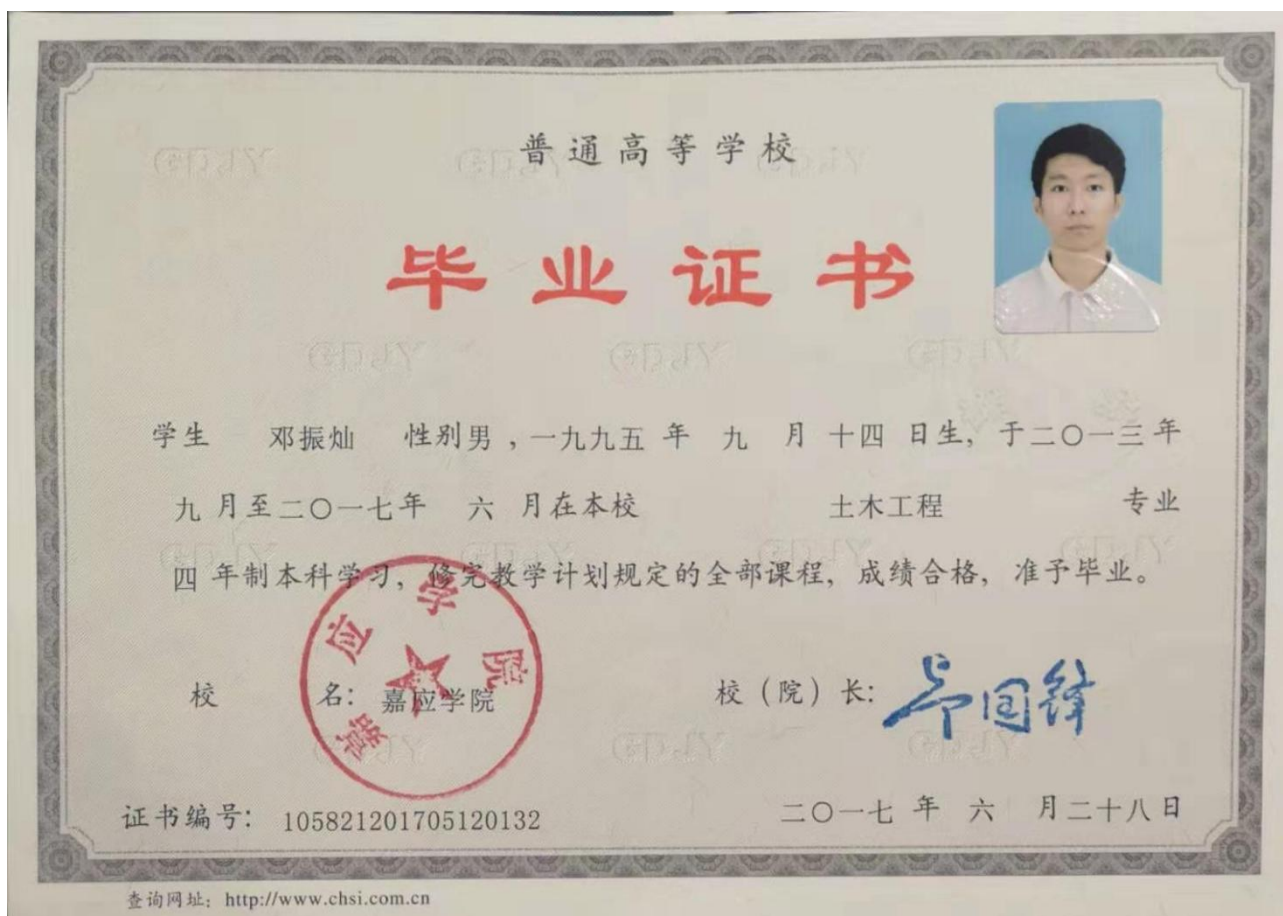 普通高等学校
毕业证书
学生 邓振灿 性别男，一九九五 年 九 月 十四 日生，于二〇一三年
九 月至二〇一七年 六 月在本校 土木工程 专业
四 年制本科学习，修完教学计划规定的全部课程，成绩合格，准予毕业。
嘉应学院
校 名：嘉应学院 校（院）长：
证书编号：105821201705120132 二〇一七 年 六 月二十八日
查询网址：http://www.chsi.com.cn